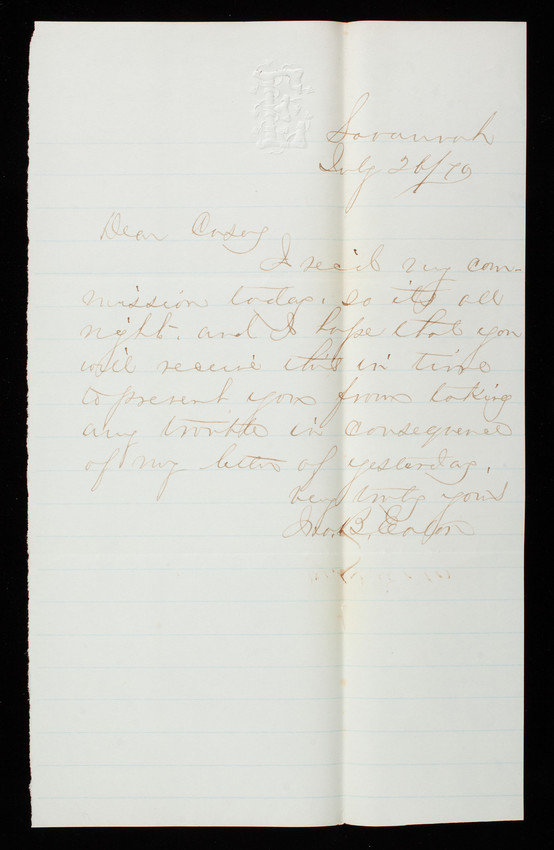 Savannah
July 26/79
Dear Casey
I rec'd my com-
mission today. so its all
right. and I hope that you
will receive this in time
to prevent you from taking
any trouble in consequence
of my letter of yesterday.
very truly yours
Jno. B.